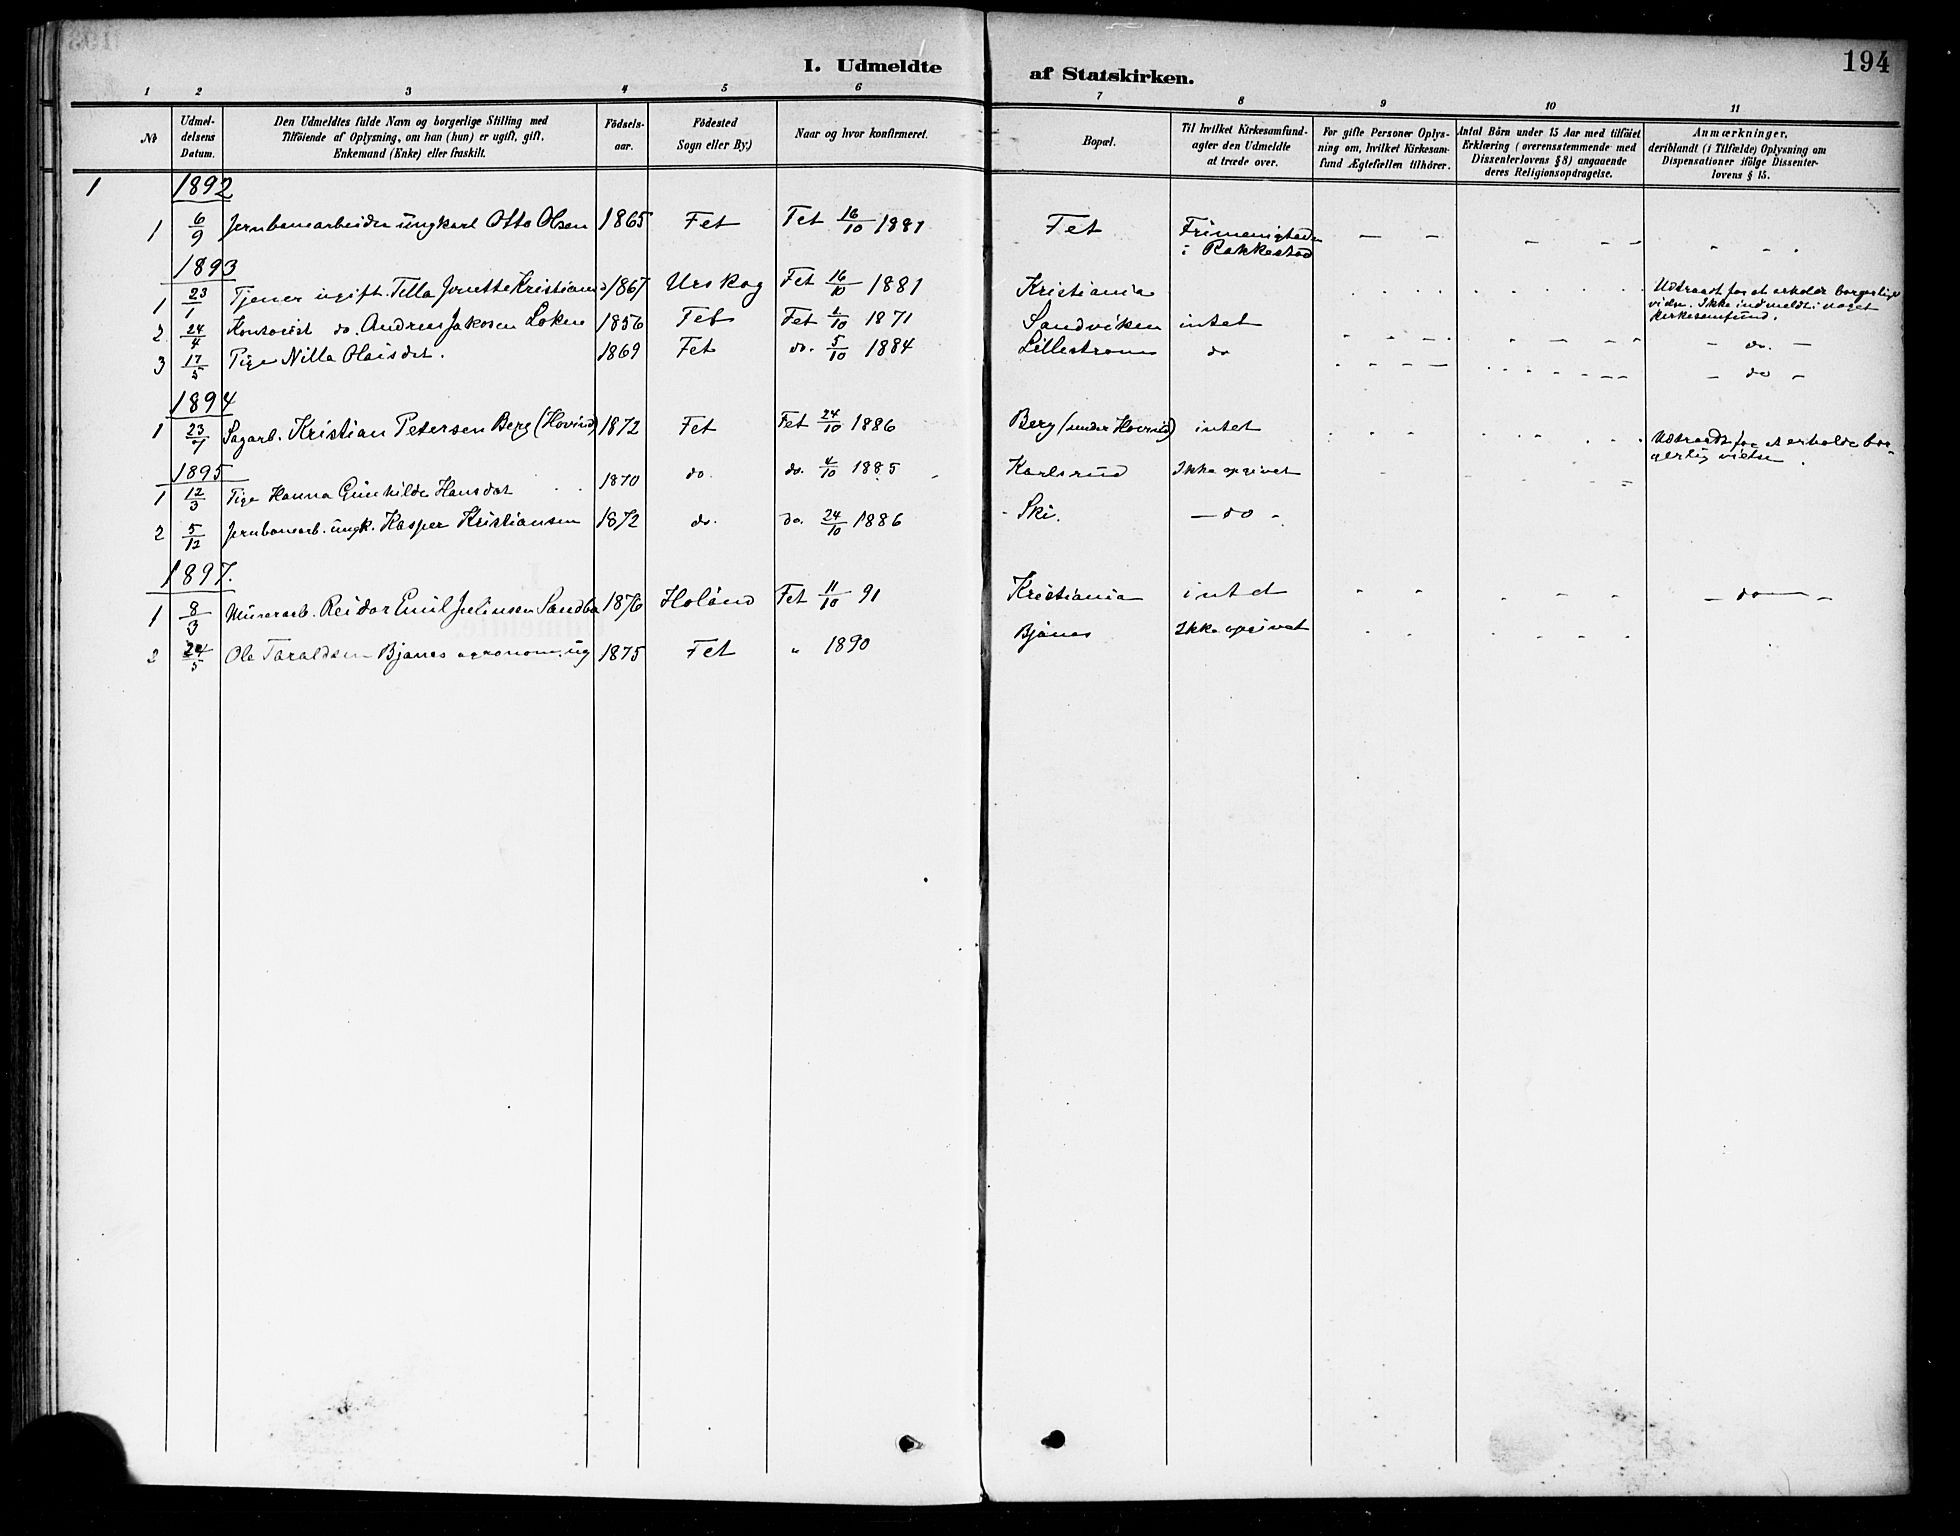 194
I. Udmeldte af Statskirken.
1 2 3 4 5 6 7 8 9 10 11
№ Udmeldelsens Datum. Den Udmeldtes fulde Navn og borgerlige Stilling med Tilföiende af Oplysning, om han (hun) er ugift, gift, Enkemand (Enke) eller fraskilt. Födselsaar. Födested Sogn eller By.) Naar og hvor konfirmeret. Bopæl. Til hvilket Kirkesamfund agter den Udmeldte at træde over. For gifte Personer Oplysning om, hvilket Kirkesamfund Ægtefællen tilhörer. Antal Börn under 15 Aar med tilföiet Erklæring (overensstemmende med Dissenterlovens § 8) angaaende deres Religionsopdragelse. Anmærkninger, deriblandt (i Tilfælde) Oplysning om Dispensationer ifölge Dissenterlovens § 15.
1 1892
1 6/9 Jernbanearbeider ungkarl Otto Olsen 1865 Fet Fet 16/10 1881 Fet Frimenigheden i Rakkestad
1893
1 23/1 Tjener ugift 1867 Urskog Fet 16/10 1881 Kristiania Udtraadt for at erholde borgerlig vielse. Ikke indmeldt i noget kirkesamfund.
2 24/4 Kontorist do. Andreas Jakobsen Løken 1856 Fet Fet 1/10 1871 Sandviken intet - do. -
3 17/5 Pige Nilla Olaisdat. 1869 Fet do. 5/10 1884 Lillestrøm do - do -
1894
1 23/7 Sagarb. Kristian Petersen Berg (Hovind) 1872 Fet Fet 24/10 1886 Berg (under Hovind) intet Udtraadt for at erholde borgerlig vielse.
1895
1 12/3 Pige Hanna Gunhilde Hansdat 1870 do. do. 4/10 1885 Karlsrud Ikke opgivet
2 5/12 Jernbanearb. ungk. Kasper Kristiansen 1872 do. do. 24/10 1886 - Ski. - do -
1897.
1 8/3 Murerarb. Reidar Emil Julinsen 1876 Høland Fet 11/10 91 Kristiania intet - do -
2 24/5 Ole Taraldsen Bjanes agronom, ug 1875 Fet " 1890 Bjanes Ikke opgivet